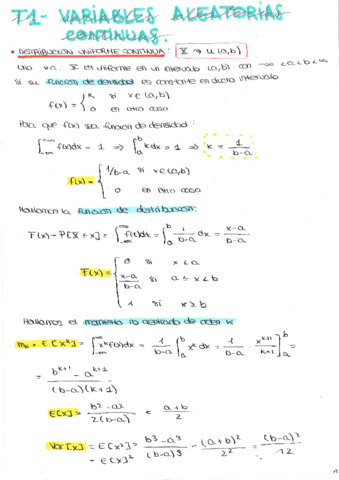 T1- VARIABLES ALEATORIAS
CONTINUAS.
• DISTRIBUCIÓN UNIFORME CONTINUA: X → U(a,b)
Una v.a. X es uniforme en un intervalo (a,b) con -∞<a<b<∞
si su función de densidad es constante en dicho intervalo
f(x) = { k si x∈(a,b)
0 en otro caso
Para que f(x) sea función de densidad:
∫_{-∞}^{+∞} f(x)dx = 1 ⇒ ∫_a^b k dx = 1 ⇒ k = 1/(b-a)
f(x) = { 1/b-a si x∈(a,b)
0 en otro caso
Hallamos la función de distribución:
F(x) = P[X ≤ x] = ∫_{-∞}^x f(t)dt = ∫_a^x 1/(b-a) dx = (x-a)/(b-a)
F(x) = { 0 si x<a
(x-a)/(b-a) si a≤x<b
1 si x≥b
Hallamos el momento no centrado de orden k
m_k = E[X^k] = ∫_{-∞}^{∞} x^k f(x)dx = 1/(b-a) ∫_a^b x^k dx = 1/(b-a) · [x^{k+1}/(k+1)]_a^b =
= (b^{k+1} - a^{k+1})/((b-a)(k+1))
E[X] = (b²-a²)/(2(b-a)) = (a+b)/2
Var[X] = E[X²] - E[X]² = (b³-a³)/((b-a)3) - (a+b)²/2² = (b-a)²/12